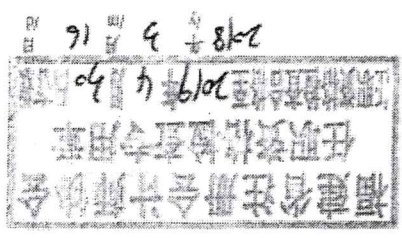 福建省注册会计师协会
任职资格检查专用章
2019年4月30日
2018年3月16日